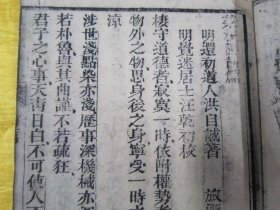 明還初道人洪自誠著 旅
明覺迷居士汪乾初校
棲守道德者寂寞一時依附權勢
物外之物思身後之身寧受一時
凉
涉世淺點染亦淺歷事深機械亦
若朴魯與其曲謹不若疏狂
君子之心事天青日白不可使人